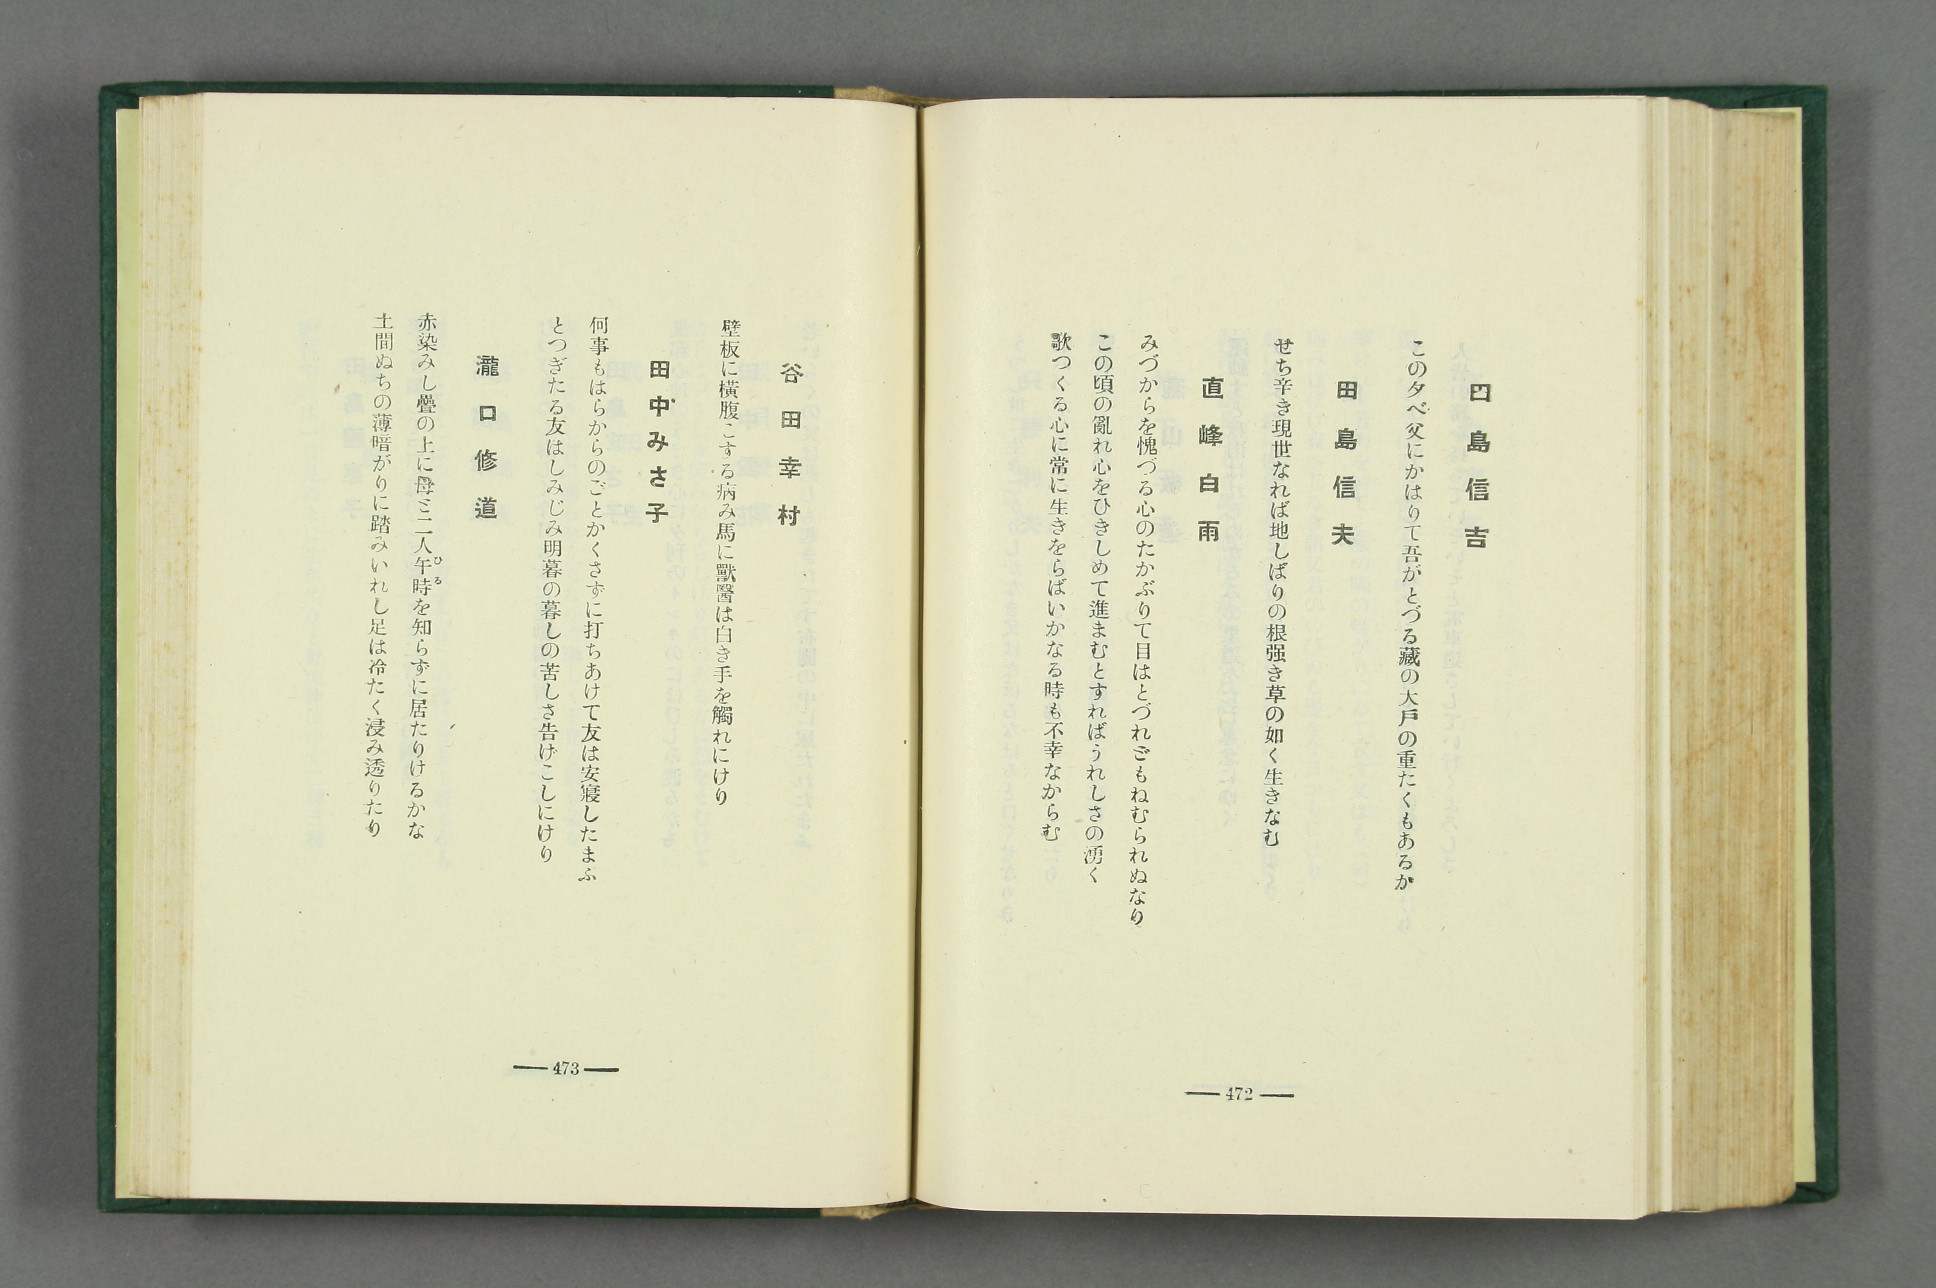 四島信吉
このタベ父にかはりて吾がとづる藏の大戸の重たくもあるか
田島信夫
せち辛き現世なれば地しばりの根强き草の如く生きなむ
直峰白雨
みづからを愧づる心のたかぶりて目はとづれどもねむられぬなり
この頃の亂れ心をひきしめて進まむとすればうれしさの湧く
歌つくる心に常に生きをらばいかなる時も不幸なからむ
472
谷田幸村
壁板に橫腹こする病み馬に獸醫は白き手を觸れにけり
田中みさ子
何事もはらからのごとかくさずに打ちあけて友は安寢したまふ
とつぎたる友はしみじみ明暮の暮しの苦しさ告げこしにけり
瀧口修道
赤染みし疊の上に母と二人午時を知らずに居たりけるかな
ひる
土間ぬちの薄暗がりに踏みいれし足は冷たく浸み透りたり
473